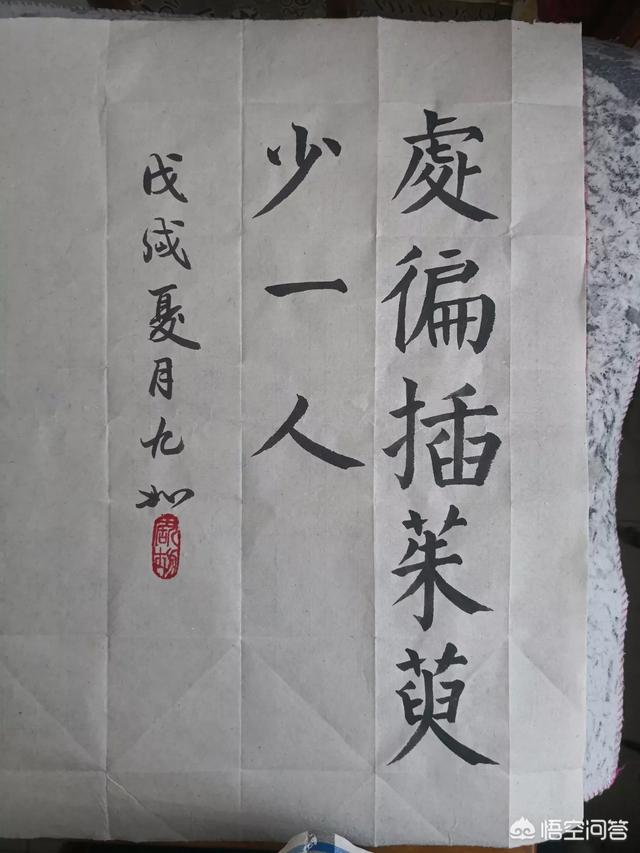 處徧插茱萸
少一人
戊戌夏月九如
悟空问答